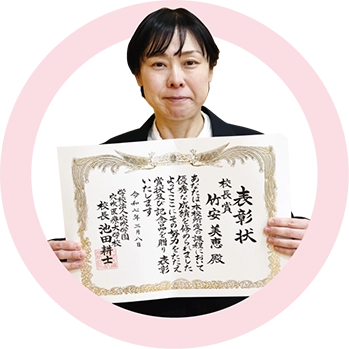 表彰状
校長賞
竹安 美恵 殿
あなたは本校所定の課程において
優秀な成績を修められました
よってここにその努力をたたえ
賞状及び記念品を贈り表彰
いたします
令和七年三月八日
校長 池田 耕士